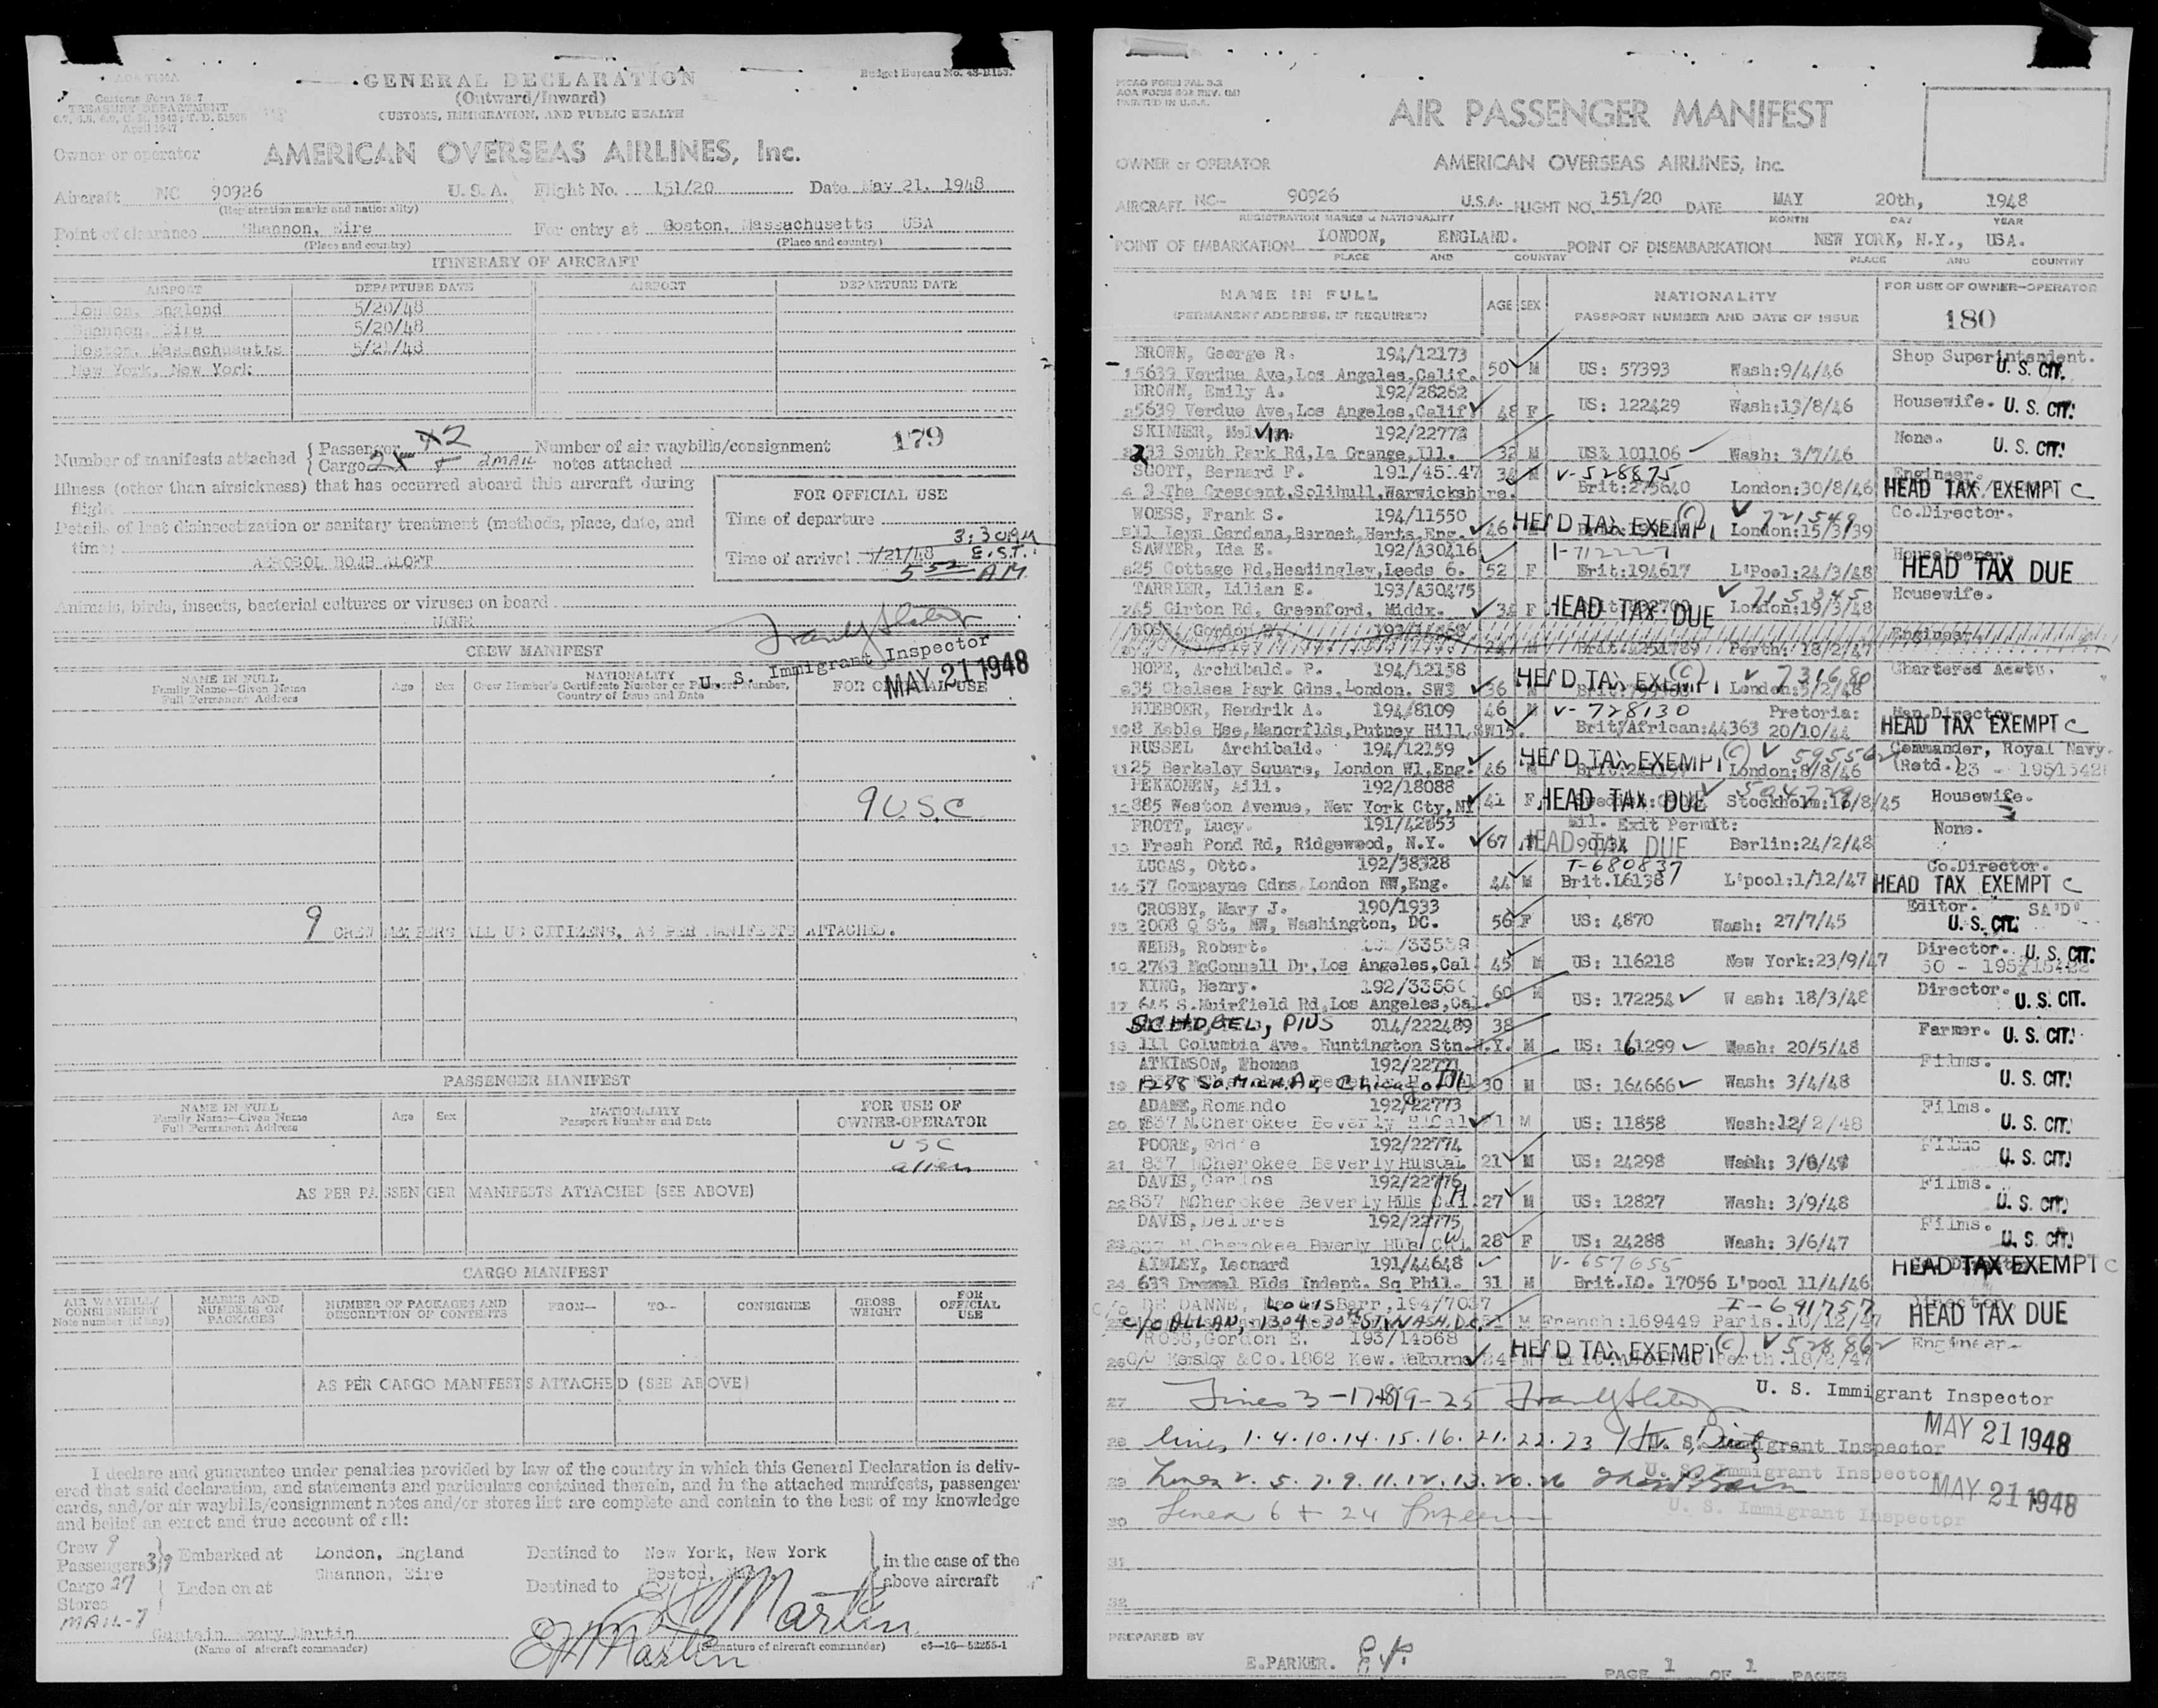 GENERAL DECLARATION
Budget Bureau No.
(Outward/Inward)
Customs Form 7507
TREASURY DEPARTMENT
CUSTOMS, IMMIGRATION, AND PUBLIC HEALTH
April 1947
Owner or operator AMERICAN OVERSEAS AIRLINES, Inc.
Aircraft NC 90926 U. S. A. Flight No. 151/20 Date May 21, 1948
(Registration marks and nationality)
Point of clearance Shannon, Eire For entry at Boston, Massachusetts USA
(Place and country) (Place and country)
ITINERARY OF AIRCRAFT
AIRPORT DEPARTURE DATE AIRPORT DEPARTURE DATE
London, England 5/20/48
Shannon, Eire 5/20/48
Boston, Massachusetts 5/21/48
New York, New York
Number of manifests attached { Passenger 2 Number of air waybills/consignment 179
Cargo 2 + 2 MAIL notes attached
Illness (other than airsickness) that has occurred aboard this aircraft during
flight
Details of last disinsectization or sanitary treatment (methods, place, date, and
time)
AEROSOL BOMB ALOFT
FOR OFFICIAL USE
Time of departure
3:30 AM
Time of arrival 5/21/48 E.S.T.
5 52 AM
Animals, birds, insects, bacterial cultures or viruses on board
NONE
U. S. Immigrant Inspector
MAY 21 1948
CREW MANIFEST
NAME IN FULL
Family Name—Given Name
Full Permanent Address
Age Sex
NATIONALITY
Crew Member's Certificate Number or Passport Number,
Country of Issue and Date
FOR OFFICIAL USE
9 U.S.C
9 CREW MEMBERS ALL US CITIZENS, AS PER MANIFESTS ATTACHED.
PASSENGER MANIFEST
NAME IN FULL
Family Name—Given Name
Full Permanent Address
Age Sex
NATIONALITY
Passport Number and Date
FOR USE OF
OWNER-OPERATOR
USC
alien
AS PER PASSENGER MANIFESTS ATTACHED (SEE ABOVE)
CARGO MANIFEST
AIR WAYBILL/
CONSIGNMENT
Note number (if any)
MARKS AND
NUMBERS ON
PACKAGES
NUMBER OF PACKAGES AND
DESCRIPTION OF CONTENTS
FROM— TO— CONSIGNEE
GROSS
WEIGHT
FOR
OFFICIAL
USE
AS PER CARGO MANIFESTS ATTACHED (SEE ABOVE)
I declare and guarantee under penalties provided by law of the country in which this General Declaration is deliv-
ered that said declaration, and statements and particulars contained therein, and in the attached manifests, passenger
cards, and/or air waybills/consignment notes and/or stores list are complete and contain to the best of my knowledge
and belief an exact and true account of all:
Crew 9
Passengers 39 Embarked at London, England Destined to New York, New York in the case of the
Cargo 27 Laden on at Shannon, Eire Destined to Boston, above aircraft
Stores
MAIL-7
Captain Martin
(Name of aircraft commander)
E Martin
E Martin
(Signature of aircraft commander)
AIR PASSENGER MANIFEST
PRINTED IN U.S.A.
OWNER or OPERATOR AMERICAN OVERSEAS AIRLINES, Inc.
AIRCRAFT NC- 90926 U.S.A. FLIGHT NO. 151/20 DATE MAY 20th, 1948
REGISTRATION MARKS & NATIONALITY MONTH DAY YEAR
POINT OF EMBARKATION LONDON, ENGLAND. POINT OF DISEMBARKATION NEW YORK, N.Y., USA.
PLACE AND COUNTRY PLACE AND COUNTRY
NAME IN FULL
(PERMANENT ADDRESS, IF REQUIRED)
AGE SEX
NATIONALITY
PASSPORT NUMBER AND DATE OF ISSUE
FOR USE OF OWNER-OPERATOR
180
BROWN, George R. 194/12173 Shop Superintendent.
1 5639 Verdue Ave, Los Angeles, Calif. 50 M US: 57393 Wash:9/4/46 U. S. CIT.
BROWN, Emily A. 192/28262
2 5639 Verdue Ave, Los Angeles, Calif 48 F US: 122429 Wash:13/8/46 Housewife. U. S. CIT.
SKINNER, Melvin 192/22772 None.
3 233 South Park Rd, La Grange, Ill. 32 M US: 101106 Wash: 3/7/46 U. S. CIT.
SCOTT, Bernard F. 191/45147 V-528875 Engineer.
4 3 The Crescent, Solihull, Warwickshire. M Brit:275640 London:30/8/46 HEAD TAX EXEMPT C
WOESS, Frank S. 194/11550 Co.Director.
5 11 Leys Gardens, Barnet, Herts, Eng. 46 HEAD TAX EXEMPT (C) V 721549 London:15/3/39
SAWYER, Ida E. 192/A30416 Housekeeper.
6 25 Cottage Rd, Headingley, Leeds 6. 52 F Brit:194617 L'Pool:24/3/48 HEAD TAX DUE
TARRIER, Lilian E. 193/A30475 V 715345 Housewife.
7 45 Girton Rd, Greenford, Middx. F HEAD TAX DUE London:19/3/48
ROSS, Gordon Engineer
Perth: 18/2/47
HOPE, Archibald. P. 194/12158 V 731680 Chartered Acctn.
9 35 Chelsea Park Gdns, London. SW3 36 HEAD TAX EXEMPT (C) London:5/2/48
NIEBOER, Hendrik A. 194/8109 46 M V-728130 Pretoria: Man.Director
10 8 Keble Hse, Manorflds, Putney Hill, SW15. Brit/African:44363 20/10/44 HEAD TAX EXEMPT C
RUSSEL Archibald. 194/12159 V 595562 Commander, Royal Navy.
11 25 Berkeley Square, London W1, Eng. 46 HEAD TAX EXEMPT (C) London:8/8/46 (Retd.)
PEKKONEN, Aili. 192/18088
12 885 Weston Avenue, New York Cty, NY 41 F HEAD TAX DUE Stockholm:16/8/45 Housewife.
PROTT, Lucy. 191/42853 Mil. Exit Permit: None.
13 Fresh Pond Rd, Ridgewood, N.Y. 67 HEAD TAX DUE Berlin:24/2/48
LUCAS, Otto. 192/38328 T-680837 Co.Director.
14 57 Compayne Gdns London NW, Eng. 44 M Brit.L6138 L'pool:1/12/47 HEAD TAX EXEMPT C
CROSBY, Mary J. 190/1933 Editor.
15 2008 Q St, NW, Washington, DC. 56 F US: 4870 Wash: 27/7/45 U. S. CIT.
WEBB, Robert. /33539 Director. U. S. CIT.
16 2763 McConnell Dr, Los Angeles, Cal. 45 M US: 116218 New York:23/9/47
KING, Henry. 192/33560 60 M Director.
17 645 S. Muirfield Rd, Los Angeles, Cal. US: 172254 Wash: 18/3/48 U. S. CIT.
SCHOBEL, PIUS 014/222489 38 Farmer.
18 111 Columbia Ave. Huntington Stn. N.Y. M US: 161299 Wash: 20/5/48 U. S. CIT.
ATKINSON, Thomas 192/22771 Films.
19 1258 So. Mich. Av, Chicago Ill 30 M US: 164666 Wash: 3/4/48 U. S. CIT.
ADAME, Romando 192/22773 Films.
20 837 N.Cherokee Beverly H. Cal M US: 11858 Wash:12/2/48 U. S. CIT.
POORE, Eddie 192/22774 Films
21 837 NCherokee Beverly Hills Cal 21 M US: 24298 Wash: U. S. CIT.
DAVIS, Carlos 192/22776 Films.
22 837 NCherokee Beverly Hills Cal. 27 M US: 12827 Wash: 3/9/48 U. S. CIT.
DAVIS, Delores 192/22775 Films.
23 837 N.Cherokee Beverly Hills Cal 28 F US: 24288 Wash: 3/6/47 U. S. CIT.
AINLEY, Leonard 191/44648 V-657655 HEAD TAX EXEMPT C
24 633 Drexel Blds Indept. Sq Phil. 31 M Brit.LO. 17056 L'pool 11/4/46
DE DANNE, LOUIS Barr, 194/7037 I-691757
25 c/o ALLAN, 1304-30th ST. WASH. D.C. M French:169449 Paris.10/12/47 HEAD TAX DUE
ROSS, Gordon E. 193/14568 V 528862 Engineer
26 C/O & Co. 1862 Kew. Melbourne 34 M HEAD TAX EXEMPT (C) Perth.18/2/47
27 Lines 3-17-18-19-25 U. S. Immigrant Inspector
28 Lines 1.4.10.14.15.16.21.22.23 U. S. Immigrant Inspector MAY 21 1948
29 Lines 2.5.7.9.11.12.13.20.26 U. S. Immigrant Inspector MAY 21 1948
30 Lines 6 + 24 U. S. Immigrant Inspector
31
32
PREPARED BY
E.PARKER. E.P.
PAGE 1 OF 1 PAGES